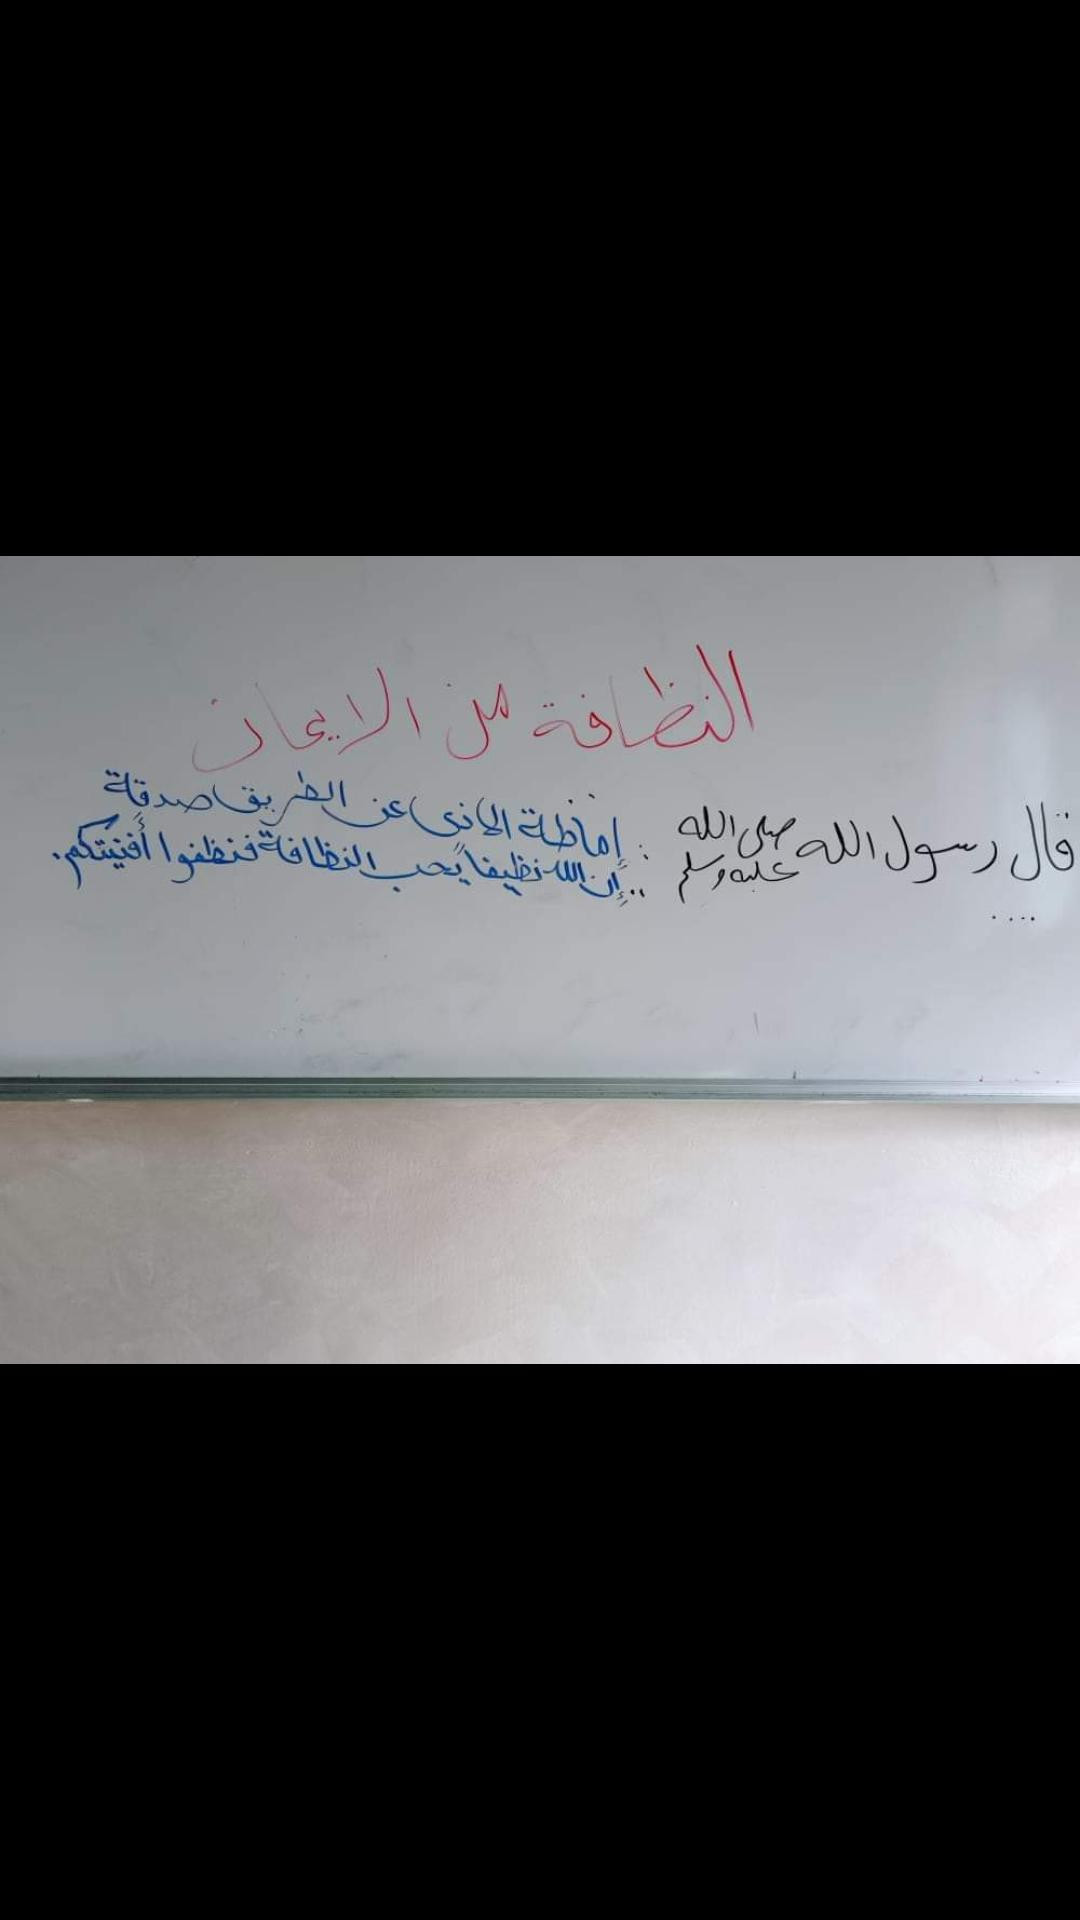 النظافة من الايمان
قال رسول الله صلى الله عليه وسلم :
إماطة الاذى عن الطريق صدقة
.. إن الله نظيفاً يحب النظافة فنظفوا أفنيتكم.
....